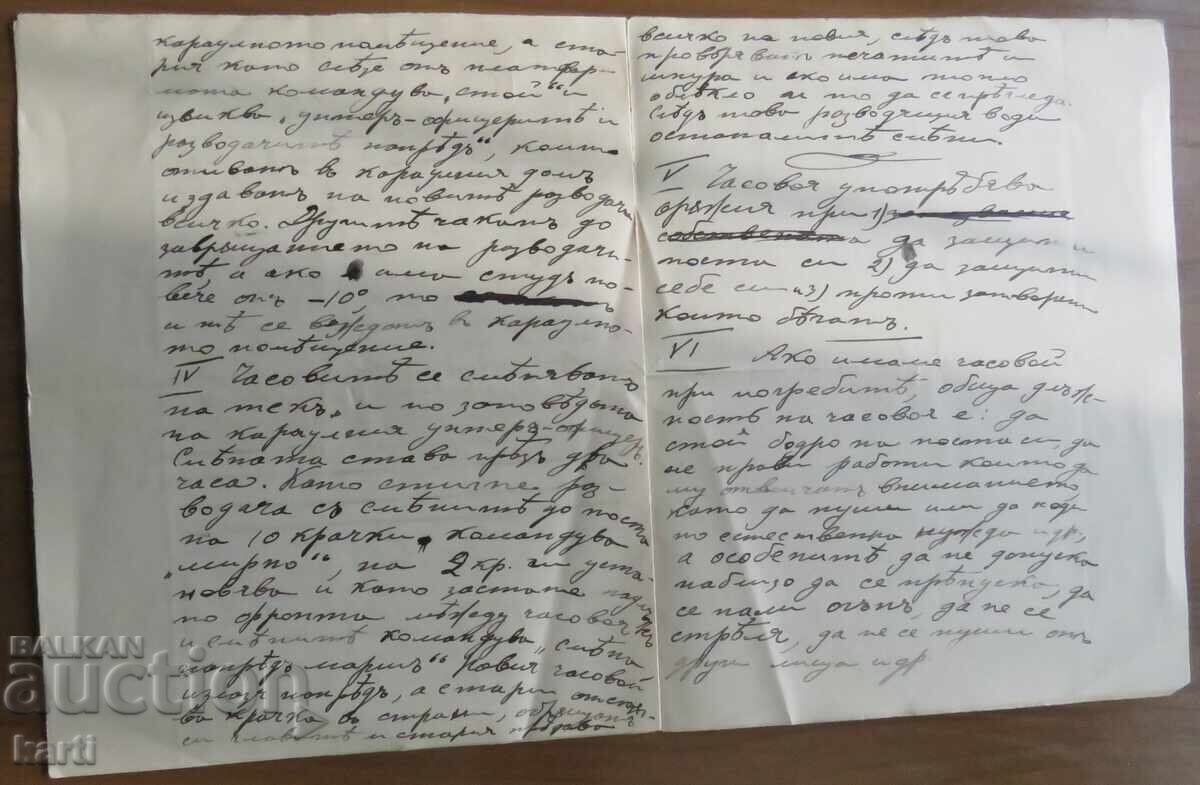 караулното помѣщение, а ста-
рия като слѣзе отъ платфор-
мата командува „стой“ и
извиква „унтеръ-офицеритѣ и
разводачитѣ напрѣдъ“, които
отиватъ въ караулния домъ
издаватъ на новитѣ разводачи
всичко. Другитѣ чакатъ до
завръщанието на разводачи-
тѣ и ако има студъ по-
вече отъ -10° то
и тѣ се веждатъ въ караулно-
то помѣщение.
IV Часовитѣ се смѣняватъ
на текъ и по заповѣдьта
на караулния унтеръ-офицеръ.
Смѣната става прѣзъ два
часа. Като стигне раз-
водача съ смѣнитѣ до поста
на 10 крачки командува
„мирно“, на 2 кр. ги уста-
новява и като застане
по фронта между часовоя
и смѣнитѣ командува „смѣна
напрѣдъ маршъ“ новия часовой
излиза напрѣдъ, а стария отстъп-
ва крачка въ страни, обръщатъ
си главитѣ и стария прѣдава
всичко на новия, слѣдъ това
провѣряватъ печатитѣ и
шнура и ако има топло
облѣкло и то да се прѣгледа.
Слѣдъ това разводящия води
останалитѣ смѣни.
V Часовоя употрѣбява
оръжия при 1)
да защити
поста си 2) да защити
себе си и 3) противъ затворени
които бѣгатъ.
VI Ако имаме часовой
при погребитѣ, обща длъж-
ность на часовоя е: да
стои бодро на поста си да
не прави работи които да
му отвличатъ вниманието
като да пуши или да ходи
по естествена нужда и др.,
а особенитѣ да не допуска
наблизо да се прѣпуска, да
се пали огънъ, да не се
стрѣля, да не се пуши отъ
други лица и др.
BALKAN
auction
karti